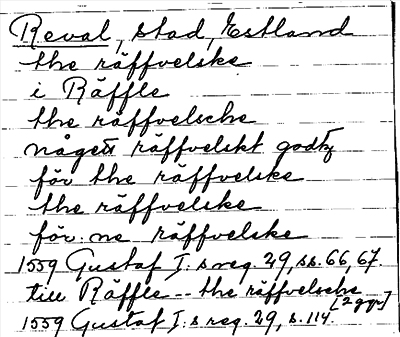 Reval, stad, Estland
the räffvelske
i Räffle
the räffvelsche
något räffvelskt godtz
för the räffvelske
the räffvelske
för:ne räffvelske
1559 Gustaf I:s reg. 29, ss. 66, 67.
till Räffle -- the räffvelsche
[2 ggr]
1559 Gustaf I:s reg. 29, s. 114.